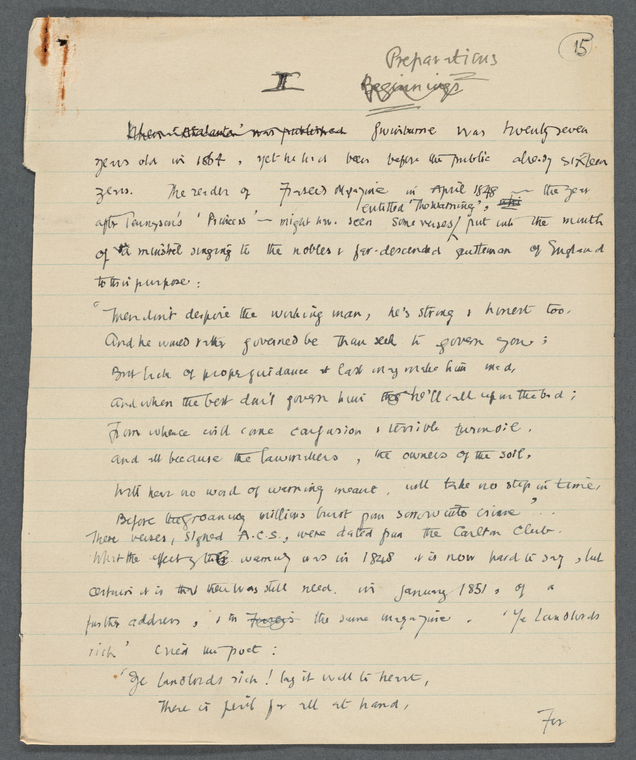 15
Preparations
II
Beginnings
When 'Atalanta' was published Swinburne was twenty seven
years old in 1864, yet he had been before the public already sixteen
years. The reader of Fraser's Magazine in April 1848 — the year
entitled 'The Warning',
after Tennyson's 'Princess' — might have seen some verses put into the mouth
of a minstrel singing to the nobles & far-descended gentlemen of England
to this purpose:
"Then don't despise the working man, he's strong & honest too.
And he would rather governed be than seek to govern you:
But lack of proper guidance at last may make him mad,
And when the best don't govern him he'll call upon the bad;
From whence will come confusion & terrible turmoil.
And all because the lawmakers, the owners of the soil,
Will hear no word of warning meant, will take no step in time,
Before the groaning millions burst from sorrow into crime".
These verses, signed A.C.S., were dated from the Carlton Club.
What the effect of the warning was in 1848 it is now hard to say, but
certain it is that there was still need in January 1851, of a
further address, in Fraser's the same magazine. 'Ye Landlords
rich' cried the poet:
"Ye landlords rich! lay it well to heart,
There is peril for all at hand,
For